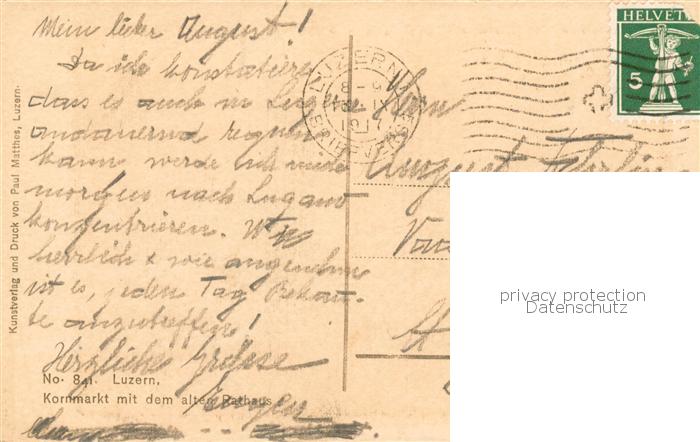 Mein lieber August!
Da ich konstatiere
dass es auch in Luzern
andauernd regnen
kann werde ich
morgen nach Lugano
konzentrieren.
herrlich & wie angenehm
ist es, jeden Tag Bekann-
te anzutreffen!
Herzliche Grüsse
Eugen
No. 841. Luzern,
Kornmarkt mit dem alten Rathaus
Kunstverlag und Druck von Paul Matthes, Luzern.
LUZERN
HELVETIA
5
August
privacy protection
Datenschutz